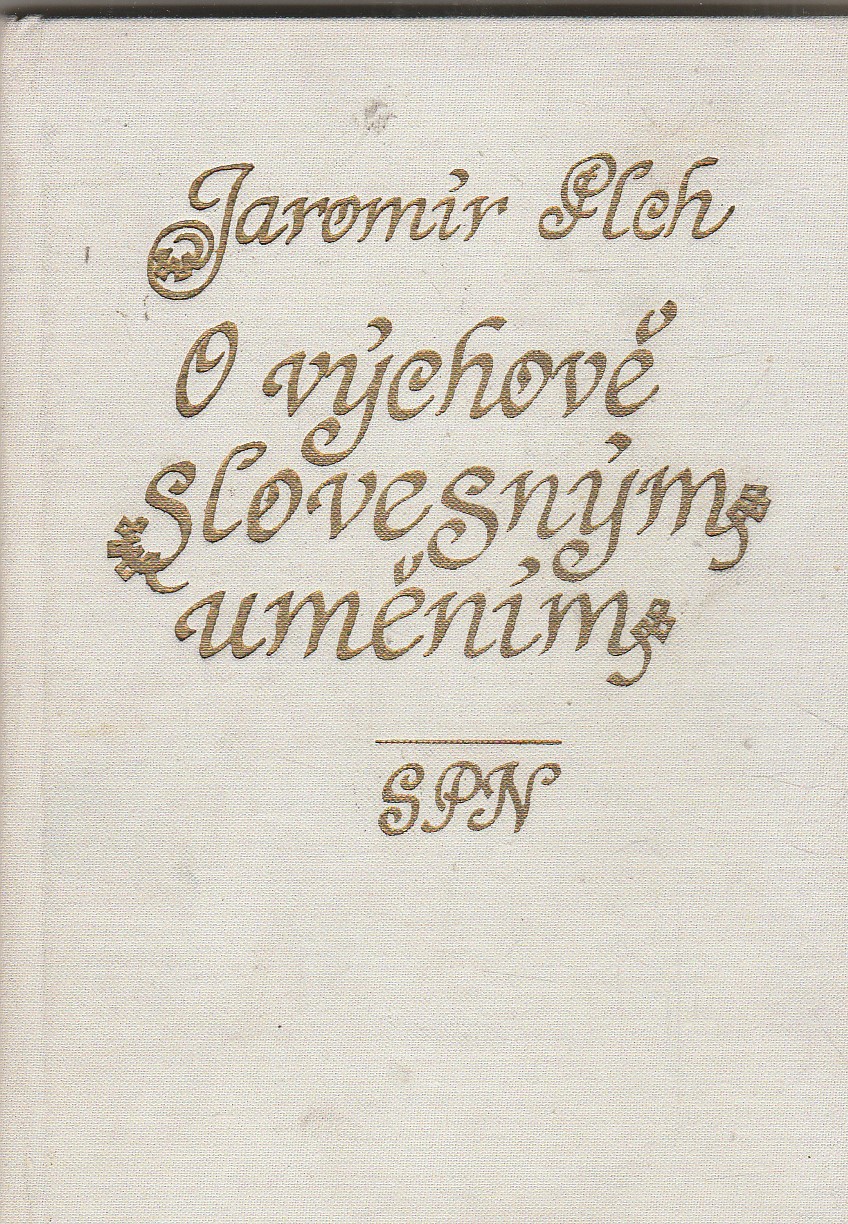 Jaromír Plch
O výchově
slovesným
uměním
SPN